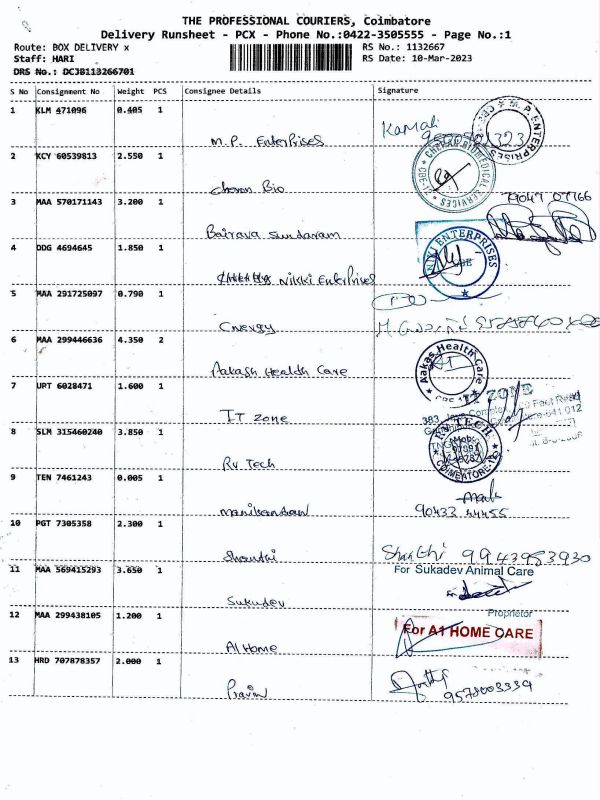 THE PROFESSIONAL COURIERS, Coimbatore
Delivery Runsheet - PCX - Phone No.:0422-3505555 - Page No.:1
Route: BOX DELIVERY x
RS No.: 1132667
Staff: HARI
RS Date: 10-Mar-2023
DRS No.: DCJB113266701
S No Consignment No Weight PCS Consignee Details Signature
1 KLM 471096 0.405 1
M.P. Enterprises
Kamali
M.P. ENTERPRISES
2 KCY 60539813 2.550 1
Cheran Bio
CHERAN BIOMEDICAL SERVICES
3 MAA 570171143 3.200 1
Bairava Sundaram
79047 07766
4 DDG 4694645 1.850 1
Nikki Enterprises
NIKKI ENTERPRISES
5 MAA 291725097 0.790 1
Cnergy
6 MAA 299446636 4.350 2
Aakash Health Care
Aakas Health Care
7 UPT 6028471 1.600 1
IT Zone
IT ZONE
8 SLM 315460240 3.850 1
Rv Tech
RV TECH
COIMBATORE-12
9 TEN 7461243 0.005 1
Manikandan
90433 44455
10 PGT 7305358 2.300 1
Shanthi
Shanthi 9943953930
11 MAA 569415293 3.650 1
Sukadev
For Sukadev Animal Care
Proprietor
12 MAA 299438105 1.200 1
A1 Home
For A1 HOME CARE
13 HRD 707878357 2.000 1
Pravin
9578003339